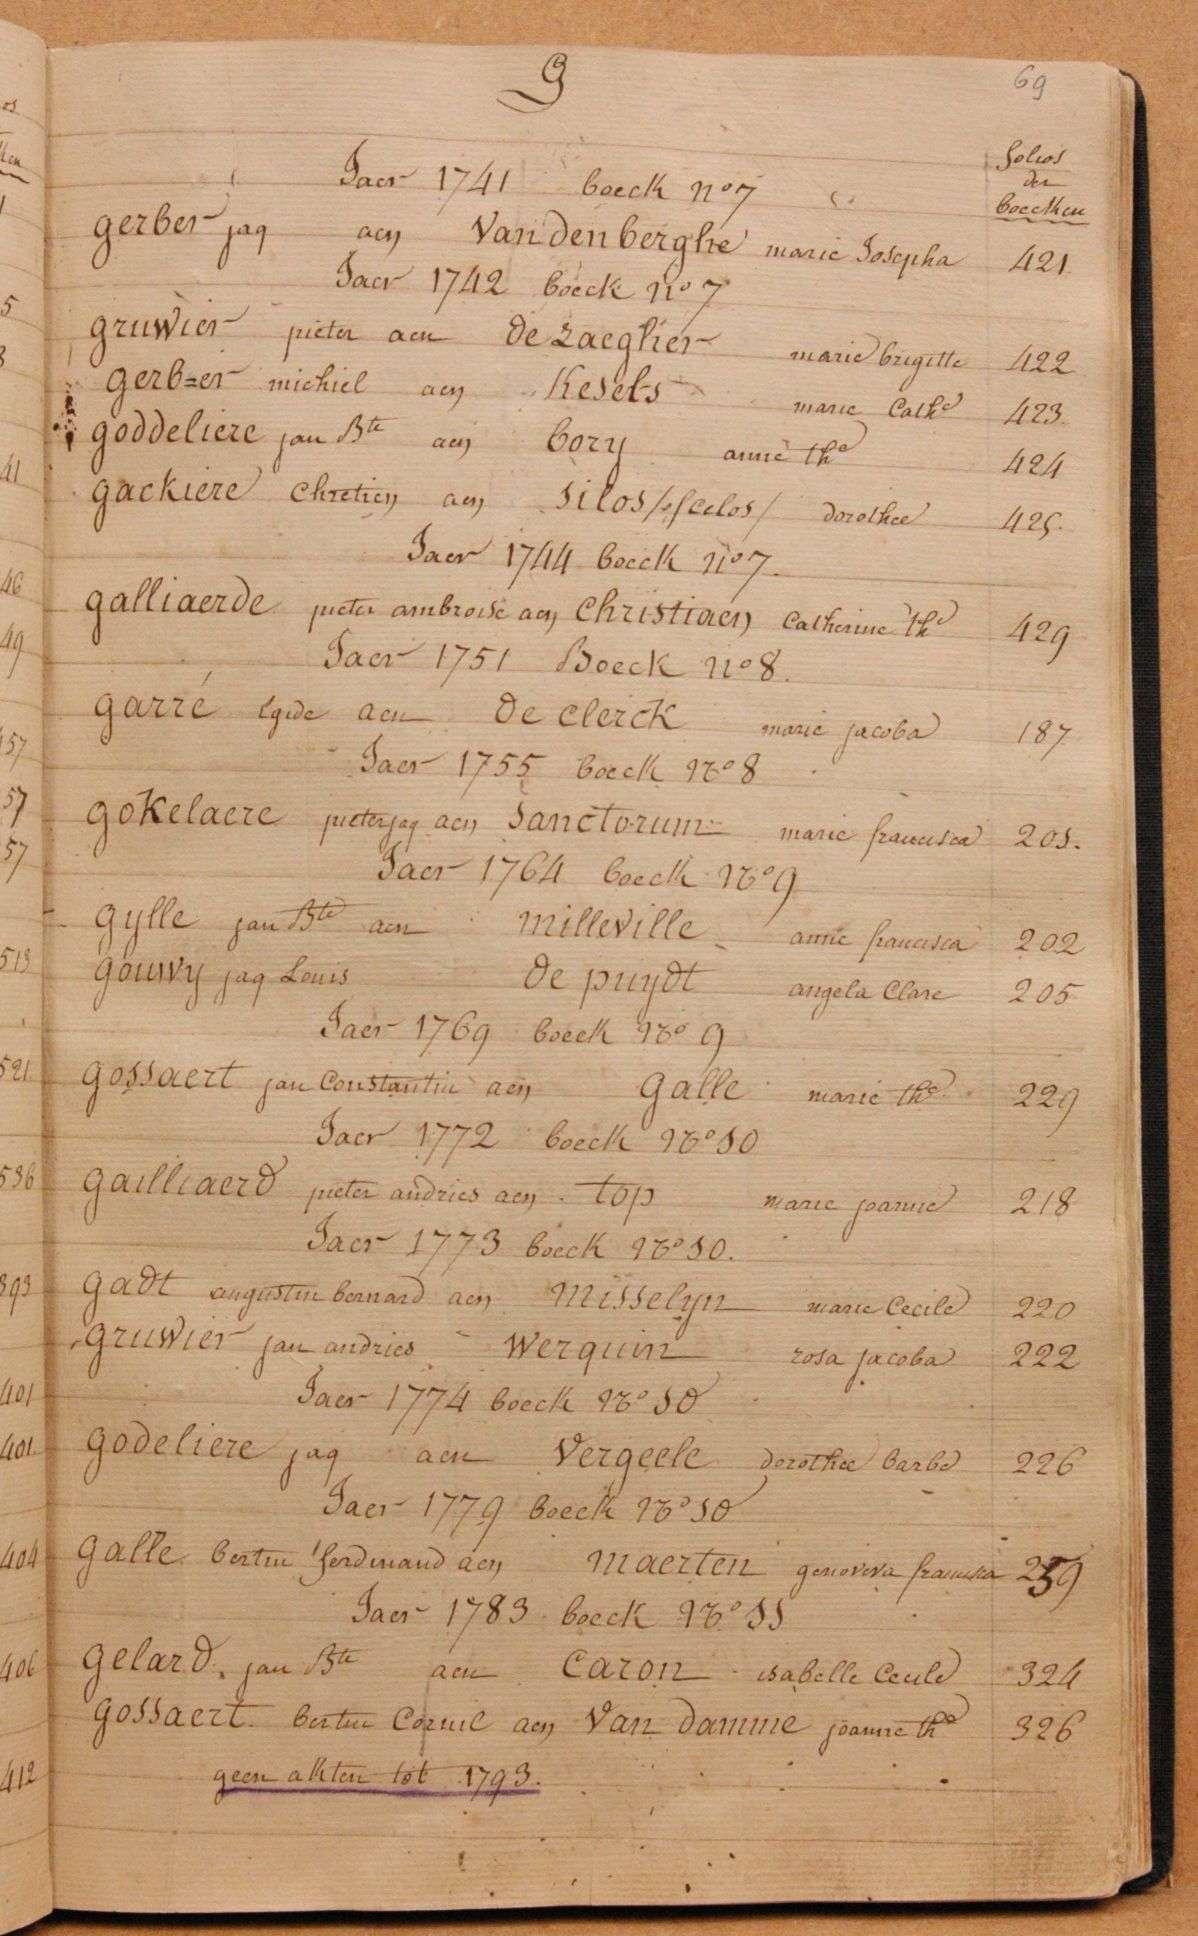 G
69
folios
der
boecken
Jaer 1741 boeck no 7
gerber jaq aen Vandenberghe marie Josepha 421
Jaer 1742 boeck no 7
gruwier pieter aen de zaegher marie brigitte 422
gerb=er michiel aen Kesels marie Cathe 423
goddeliere jan Bte aen bory anne the 424
gackiere Chretien aen silos /of celos/ dorothee 425.
Jaer 1744 boeck no 7.
galliaerde pieter ambroise aen Christiaen Catherine the 429
Jaer 1751 Boeck no 8.
garré Egide aen de clerck marie jacoba 187
Jaer 1755 boeck No 8
gokelaere pieter jaq aen Sanctorum marie francisca 201.
Jaer 1764 boeck No 9
gylle jan Bte aen milleville anne francisca 202
gouwy jaq Louis de puydt angela Clare 205
Jaer 1769 boeck No 9
gossaert jan Constantin aen galle marie the 229
Jaer 1772 boeck No 10
gailliaerd pieter andries aen top marie joanne 218
Jaer 1773 boeck No 10.
gadt augustin bernard aen misselyn marie Cecile 220
gruwier jan andries " werquin rosa jacoba 222
Jaer 1774 boeck No 10
godeliere jaq aen Vergeele dorothee barbe 226
Jaer 1779 boeck No 10
galle bertin ferdinand aen maerten genoveva francisca 259
Jaer 1783 boeck No 11
gelard jan Bte aen Caron isabelle Cecile 324
gossaert bertin Cornil aen Van damme joanne the 326
geen akten tot 1793.